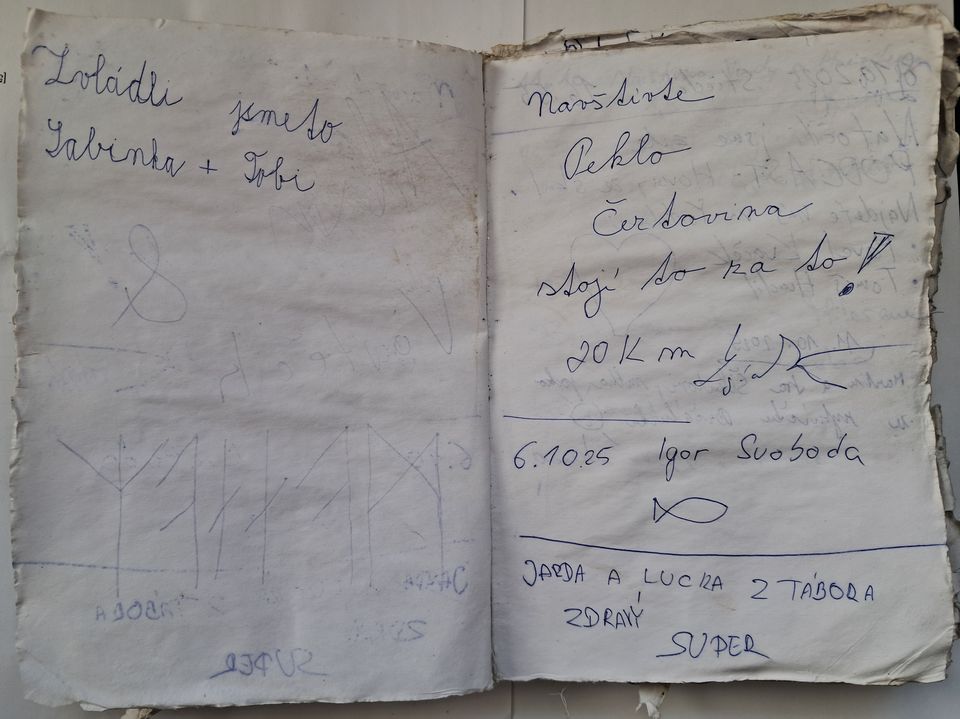 Zvládli
jsme to
Sabinka + Tobi
Navštivte
Peklo
Čertovina
stojí to za to!
20 Km
6.10.25 Igor Svoboda
JARDA A LUCKA Z TÁBORA
ZDRAVÝ
SUPER